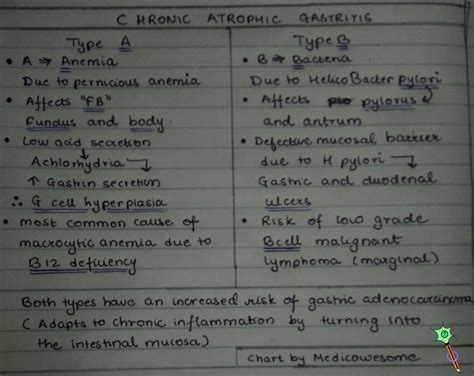 CHRONIC ATROPHIC GASTRITIS
Type A
• A ⇒ Anemia
Due to pernicious anemia
• Affects "FB"
Fundus and body.
• Low acid secretion
Achlorhydria
↑ Gastrin secretion
∴ G cell hyperplasia
• most common cause of
macrocytic anemia due to
B12 deficiency
Type B
• B ⇒ Bacteria
Due to HelicoBacter pylori
• Affects pylorus
and antrum
• Defective mucosal barrier
due to H pylori
Gastric and duodenal
ulcers
• Risk of low grade
B cell malignant
lymphoma (marginal)
Both types have an increased risk of gastric adenocarcinoma
( Adapts to chronic inflammation by turning into
the intestinal mucosa)
chart by Medicowesome